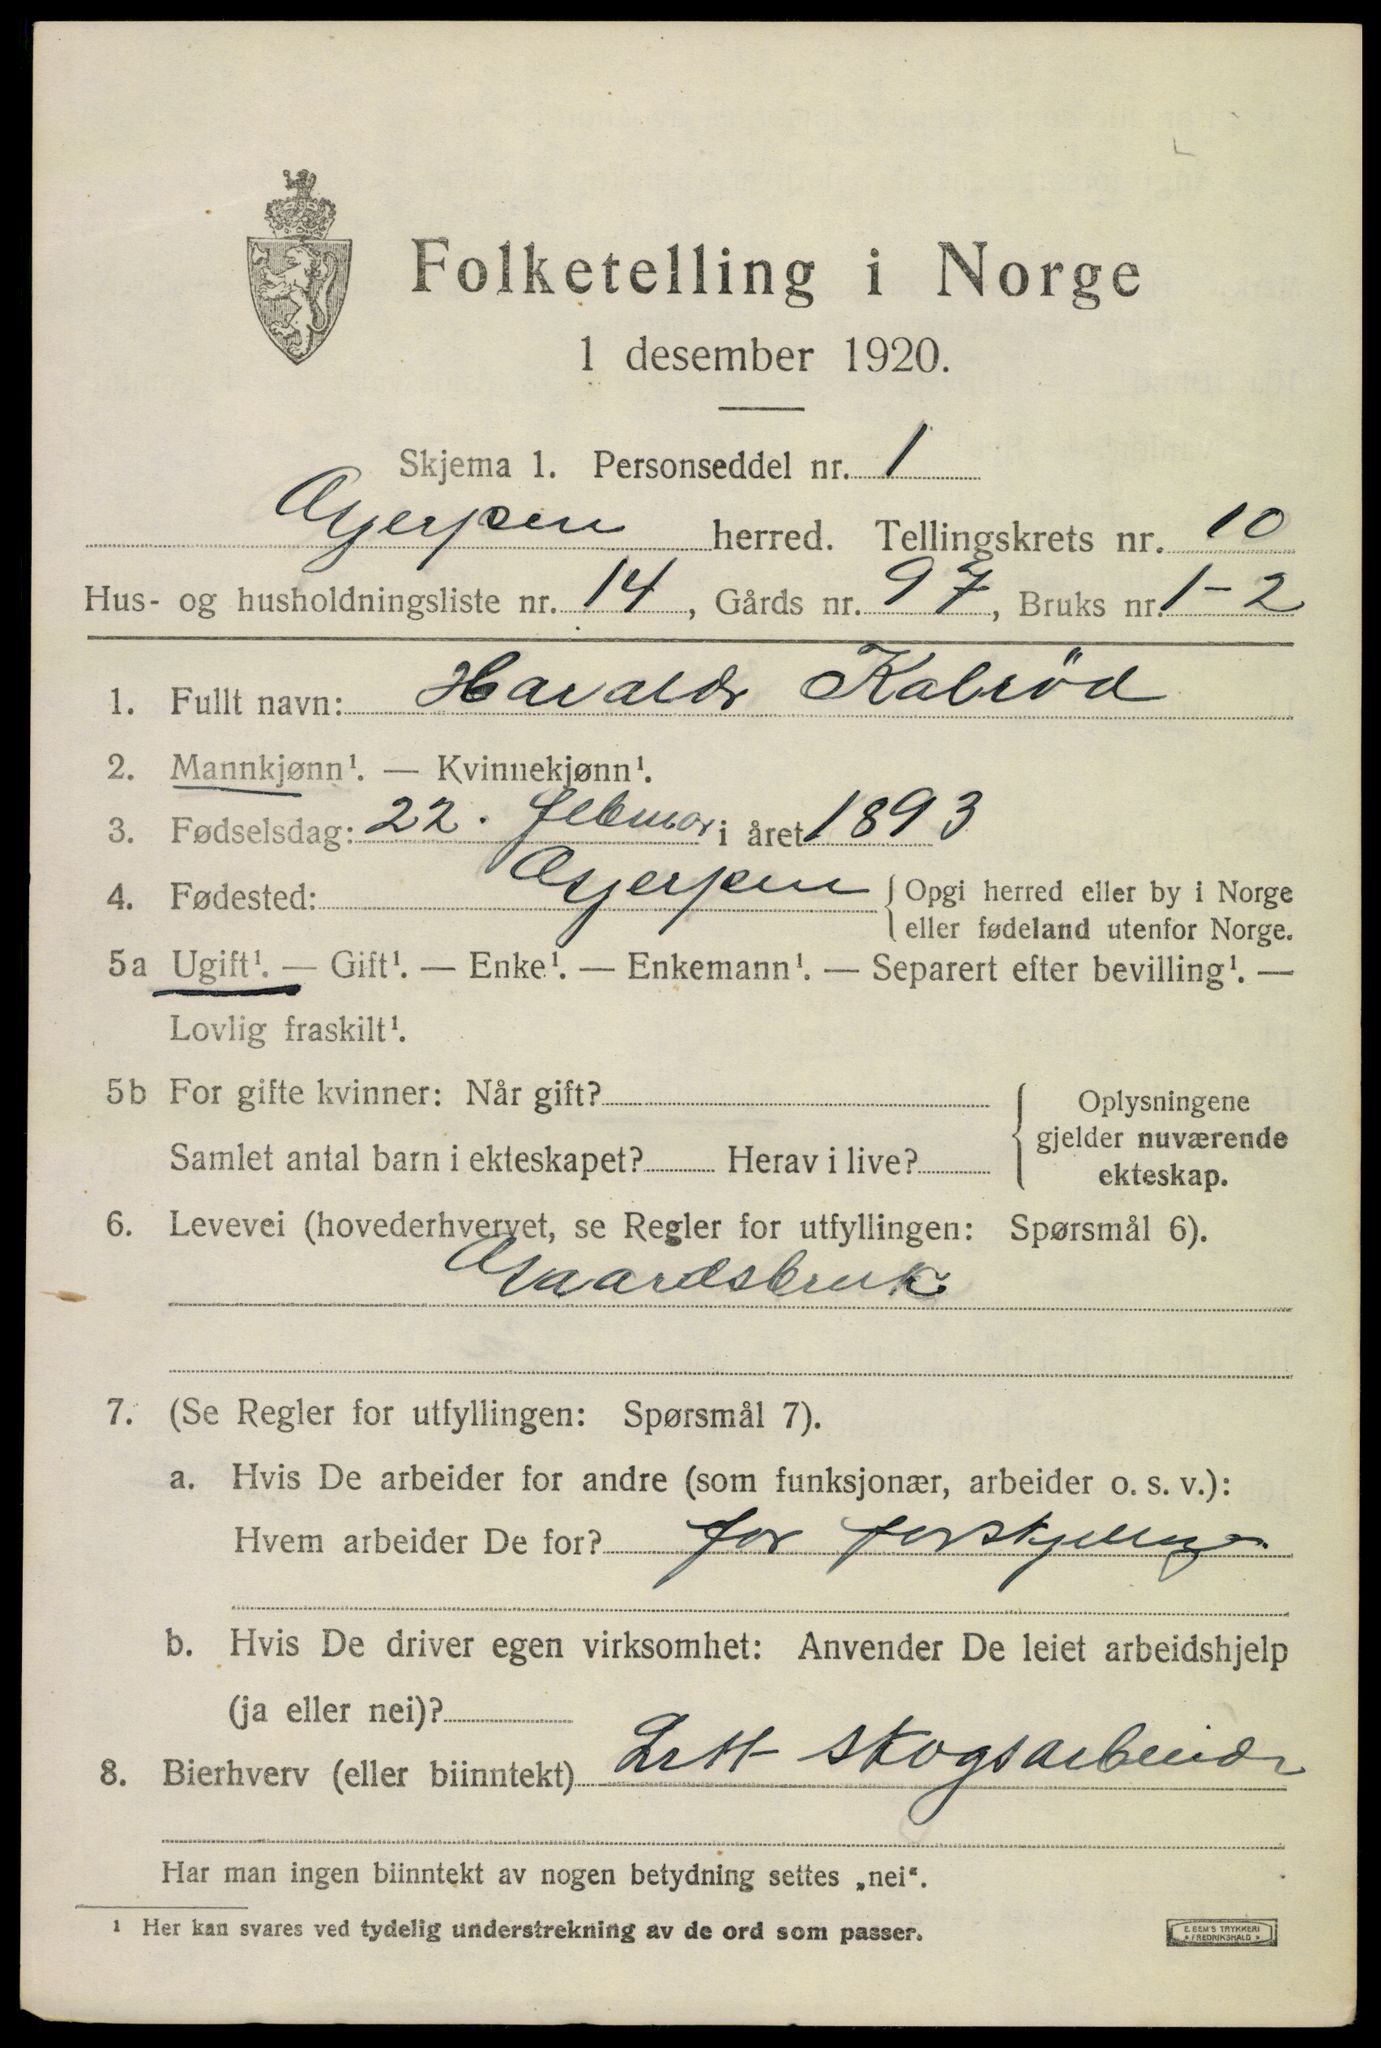 Folketelling i Norge
1 desember 1920.
Skjema 1. Personseddel nr. 1
Gjerpen herred. Tellingskrets nr. 10
Hus- og husholdningsliste nr. 14, Gårds nr. 97, Bruks nr. 1-2
1. Fullt navn: Harald Kalrød
2. Mannkjønn¹. — Kvinnekjønn¹.
3. Fødselsdag: 22. februar i året 1893
4. Fødested: Gjerpen { Opgi herred eller by i Norge
eller fødeland utenfor Norge.
5a Ugift¹. — Gift¹. — Enke¹. — Enkemann¹. — Separert efter bevilling¹. —
Lovlig fraskilt¹.
5b For gifte kvinner: Når gift? { Oplysningene
gjelder nuværende
Samlet antal barn i ekteskapet? Herav i live?
ekteskap.
6. Levevei (hovederhvervet, se Regler for utfyllingen: Spørsmål 6).
Gaardsbruk
7. (Se Regler for utfyllingen: Spørsmål 7).
a. Hvis De arbeider for andre (som funksjonær, arbeider o. s. v.):
Hvem arbeider De for? for forskjellige
b. Hvis De driver egen virksomhet: Anvender De leiet arbeidshjelp
(ja eller nei)?
8. Bierhverv (eller biinntekt) Litt skogsarbeide
Har man ingen biinntekt av nogen betydning settes „nei“.
¹ Her kan svares ved tydelig understrekning av de ord som passer.
E. SEM'S TRYKKERI
* FREDRIKSHALD *